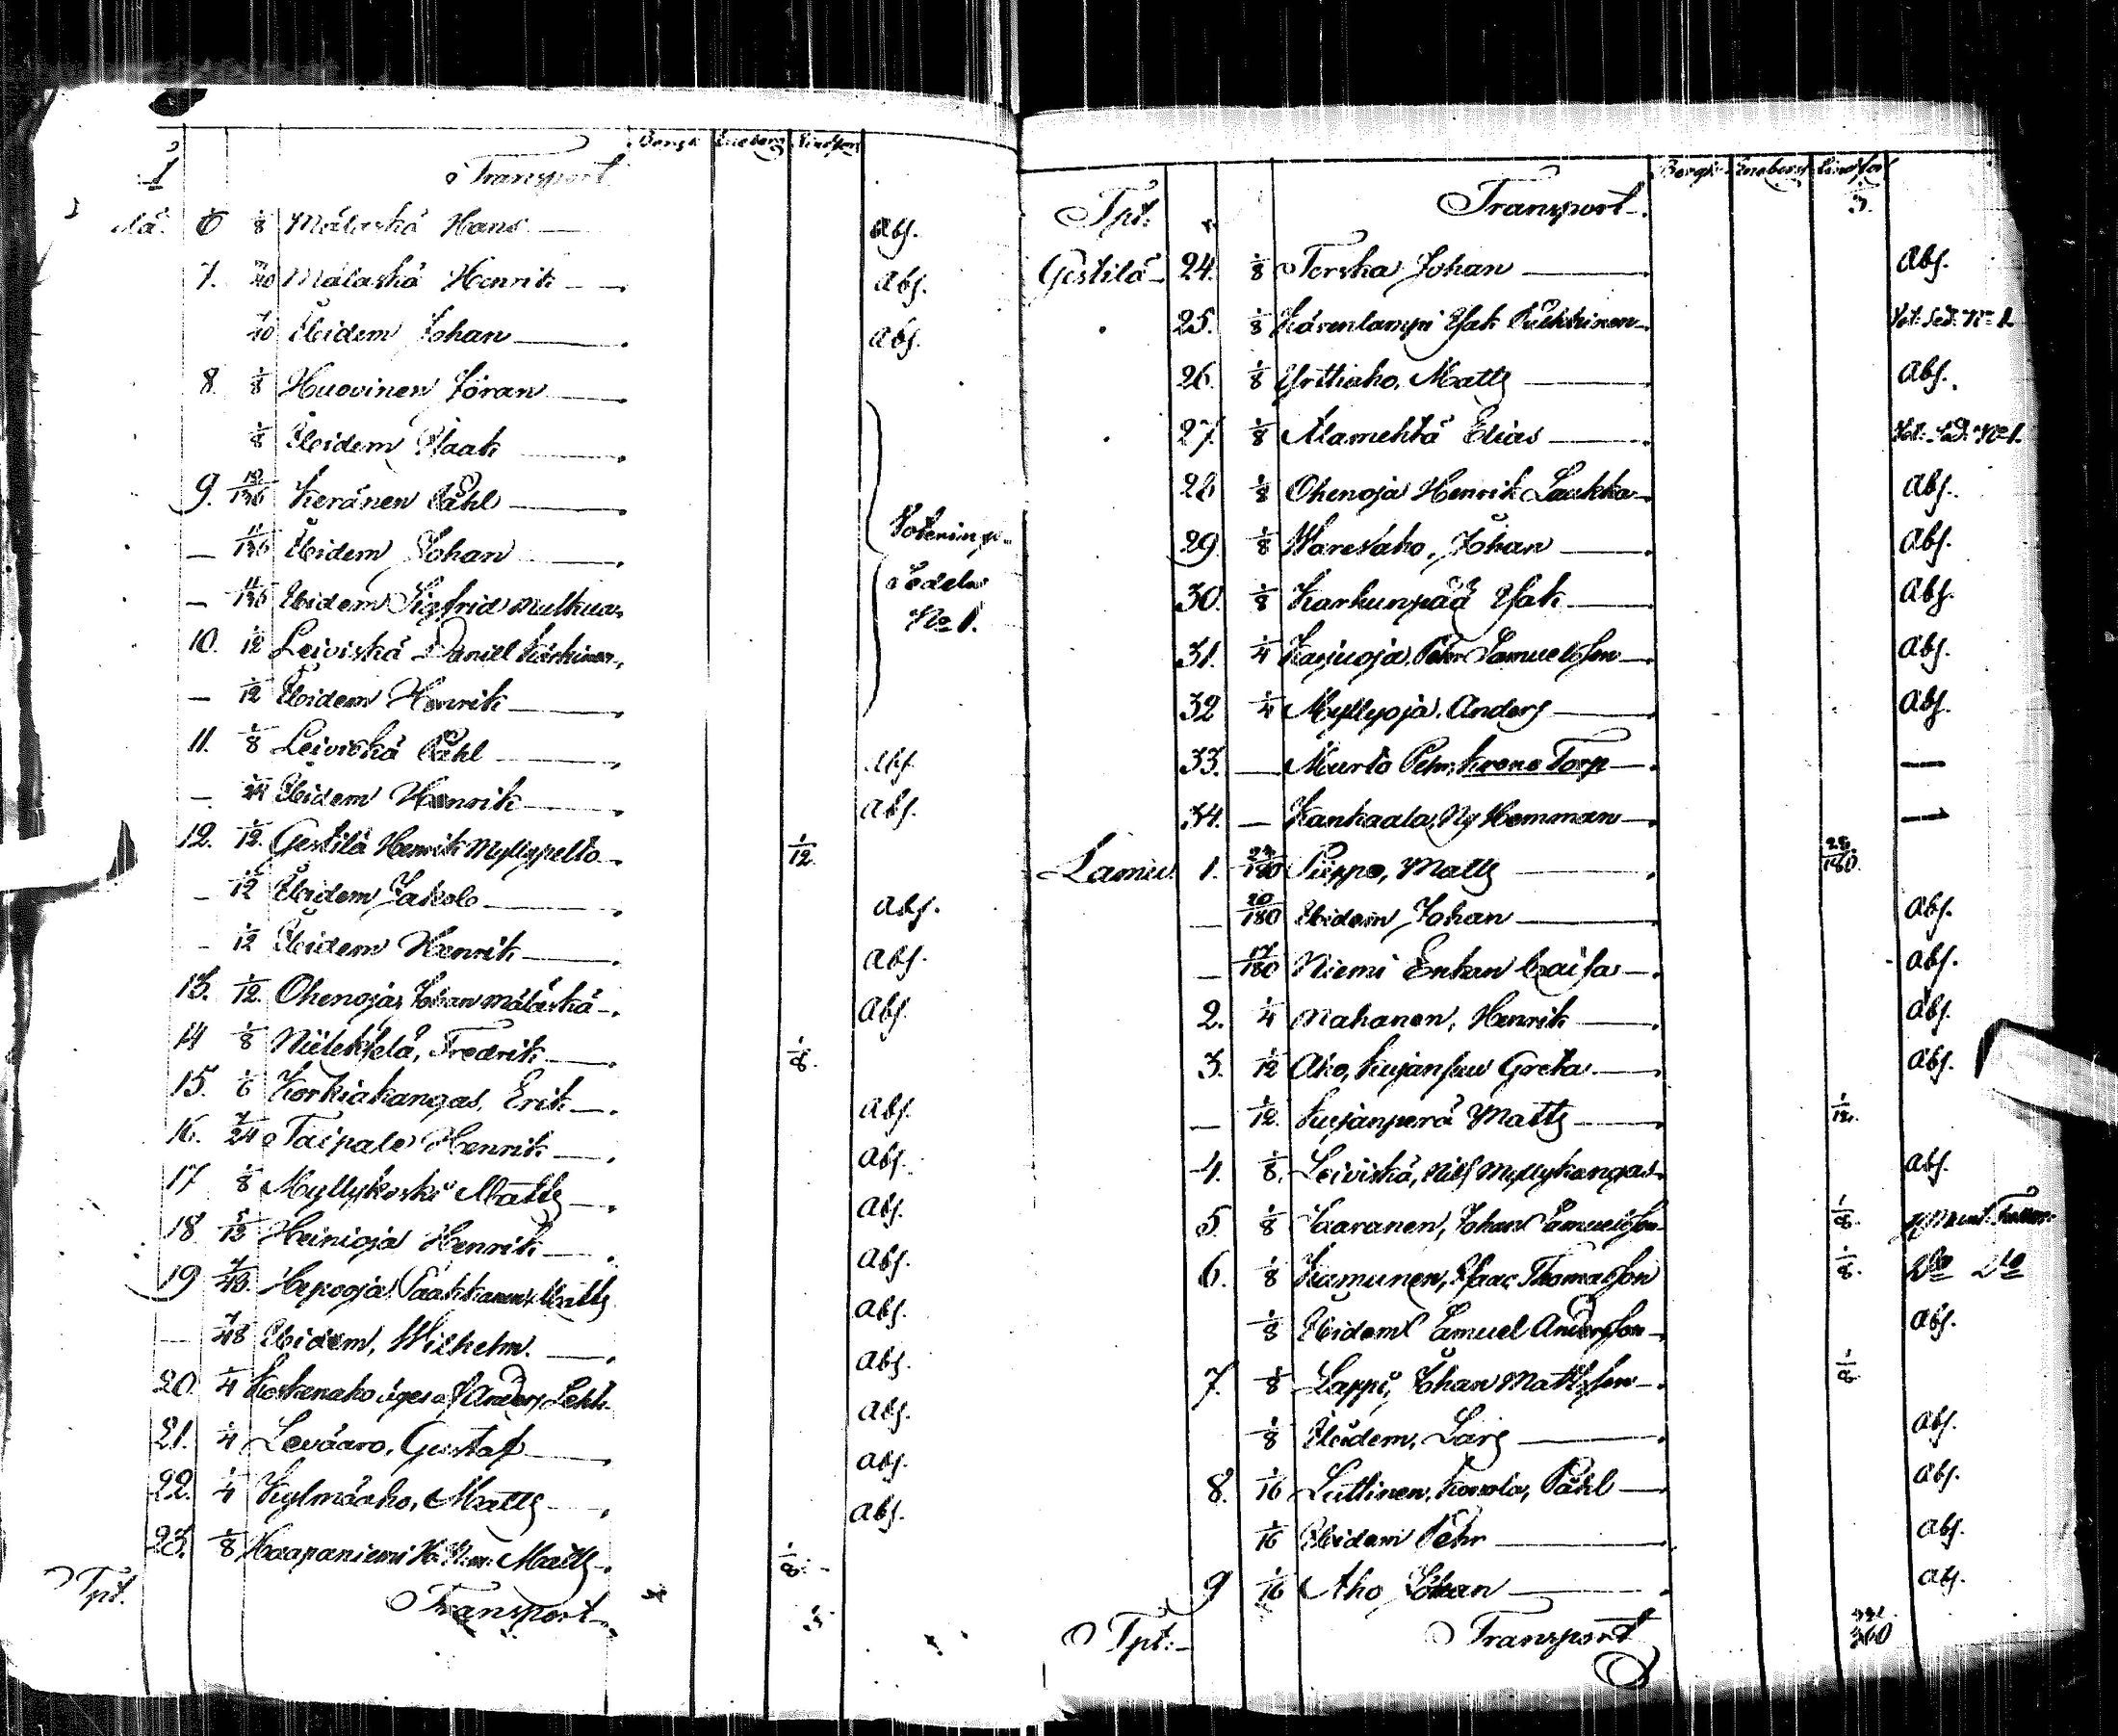 Bergk Eneberg Lindfors
1 Transport
6 1/8 Mälaskä Hans abs.
7. Mälaskä Henrik abs.
Ibidem Johan abs.
8. 1/8 Huovinen Jöran
1/8 Ibidem Isaak
9. Keränen Påhl
— Ibidem Johan Voterings-
— Ibidem Sigfrid Mulkua Sedeln
10. 1/12 Leiviskä Daniel No 1.
— 1/12 Ibidem Henrik
11. 1/8 Leiviskä Påhl abs.
— 1/24 Ibidem Henrik abs.
12. 1/12. Gestilä Henrik Myllypelto 1/12.
— 1/12 Ibidem Jakob abs.
— 1/12 Ibidem Henrik abs.
13. 1/12. Ohenoja, Johan Mälaskä abs.
14 1/8 Niilekselä, Fredrik 1/8.
15. 1/6 Korkiakangas, Erik abs.
16. 7/24 Taipale Henrik abs.
17 1/8 Myllykoski Matts abs.
18. 5/12 Heinioja Henrik abs.
19 7/48. Hepooja Paakkonen, Matts abs.
— 7/48 Ibidem, Wilhelm. abs.
20. 1/4 Koskenaho äges af Anders Lehk. abs.
21. 1/4 Levääro, Gustaf abs.
22. 1/4 Kylmäaho, Matts abs.
23. 1/8 Haapaniemi Matts 1/8.
Tpt. Transport
Bergk Eneberg Lindfors
Tpt. Transport
Gestilä 24. 1/8 Torska Johan abs.
25. 1/8 Kärenlampi Isak Pulkkinen Vot: Sed: No 1.
26. 1/8 Yrttiaho, Matts abs.
27. 1/8 Alamehtä Elias Vot: Sed: No 1.
28 1/8 Ohenoja Henrik Laukka abs.
29. 1/8 Waresaho, Johan abs.
30. 1/8 Karkunpää Isak abs.
31. 1/4 Kajuoja, Pehr Samuelsson abs.
32 1/4 Myllyoja, Anders abs.
33. — Murto Pehr, Krono Torp —
34. — Kankaala, Ny Hemman —
Lamu 1. Piippo, Matts
— 20/180 Ibidem Johan abs.
— 17/180 Niemi Enkan Caisa abs.
2. 1/4 Mahanen, Henrik abs.
3. 1/12 Aho, Greta abs.
— 1/12. Kujanperä Matts 1/12.
4. 1/8. Leiviskä, Nils Myllykangas abs.
5 1/8 Saaranen, Johan Samuelsson 1/8.
6. 1/8 Kamunen, Isaac Thomasson 1/8. Do Do
1/8 Ibidem Samuel Andersson abs.
7. 1/8 Lappi, Johan Mattsson 1/8
1/8 Ibidem, Lars abs.
8. 1/16 Luttinen, Påhl abs.
1/16 Ibidem Pehr abs.
9 1/16 Aho Johan abs.
Tpt. Transport